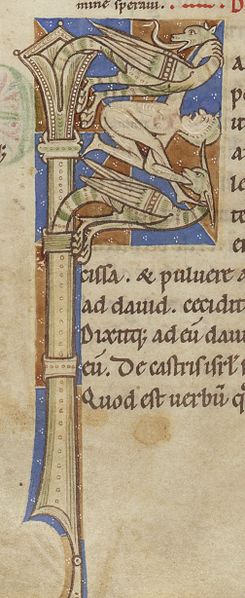 mine speraui.
a
p
ut
a
le
t
e
cissa. & puluere a
ad dauid. cecidit
Dixitq; ad eū daui
eū. De castris isrl̄
Quod est uerbū q